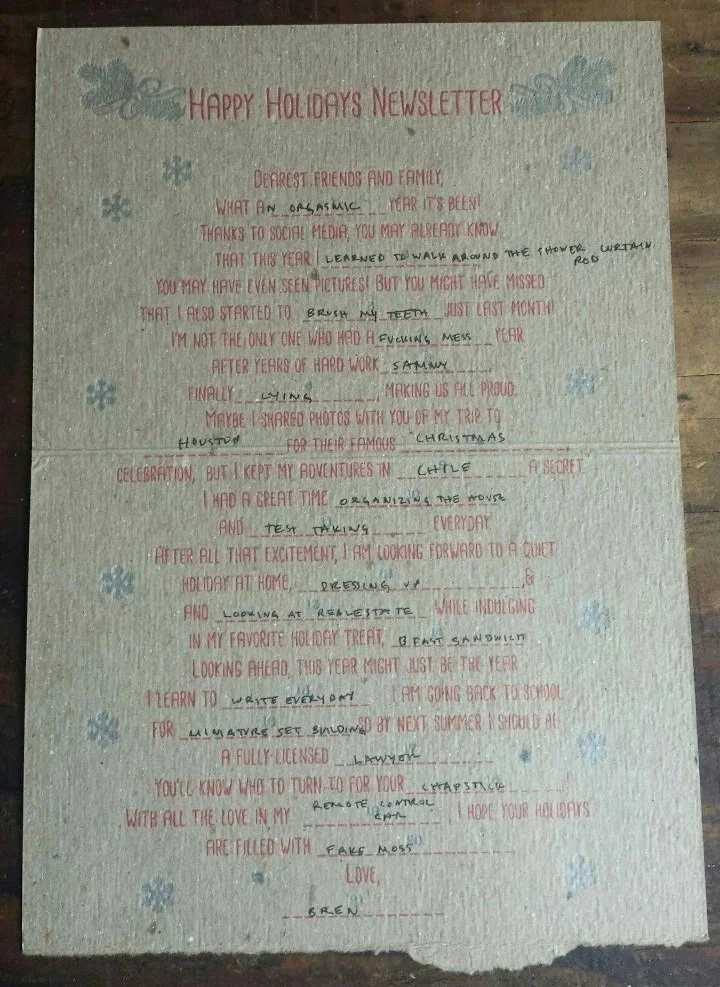 HAPPY HOLIDAYS NEWSLETTER
DEAREST FRIENDS AND FAMILY,
WHAT AN ORGASMIC YEAR IT'S BEEN!
THANKS TO SOCIAL MEDIA, YOU MAY ALREADY KNOW
THAT THIS YEAR I LEARNED TO WALK AROUND THE SHOWER CURTAIN ROD
YOU MAY HAVE EVEN SEEN PICTURES! BUT YOU MIGHT HAVE MISSED
THAT I ALSO STARTED TO BRUSH MY TEETH JUST LAST MONTH!
I'M NOT THE ONLY ONE WHO HAD A FUCKING MESS YEAR
AFTER YEARS OF HARD WORK SAMMY,
FINALLY LYING, MAKING US ALL PROUD.
MAYBE I SHARED PHOTOS WITH YOU OF MY TRIP TO
HOUSTON FOR THEIR FAMOUS CHRISTMAS
CELEBRATION, BUT I KEPT MY ADVENTURES IN CHILE A SECRET.
I HAD A GREAT TIME ORGANIZING THE HOUSE
AND TEST TAKING EVERYDAY
AFTER ALL THAT EXCITEMENT, I AM LOOKING FORWARD TO A QUIET
HOLIDAY AT HOME, DRESSING UP, &
AND LOOKING AT REALESTATE WHILE INDULGING
IN MY FAVORITE HOLIDAY TREAT, BFAST SANDWICH
LOOKING AHEAD, THIS YEAR MIGHT JUST BE THE YEAR
I LEARN TO WRITE EVERYDAY I AM GOING BACK TO SCHOOL
FOR MINIATURE SET BUILDING SO BY NEXT SUMMER I SHOULD BE
A FULLY-LICENSED LAWYER
YOU'LL KNOW WHO TO TURN TO FOR YOUR CHAPSTICK!
WITH ALL THE LOVE IN MY REMOTE CONTROL CAR, I HOPE YOUR HOLIDAYS
ARE FILLED WITH FAKE MOSS
LOVE,
BREN